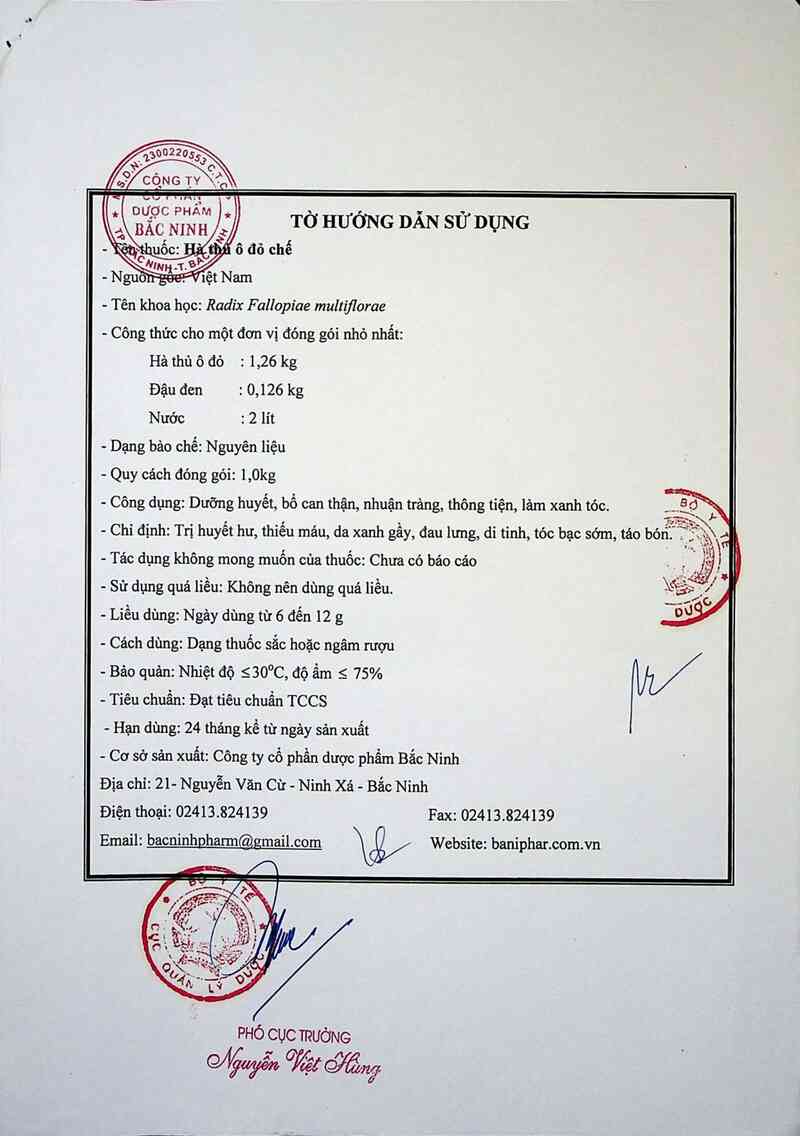 M.S.D.N: 2300220553.C.T.C.P
CÔNG TY
CỔ PHẦN
DƯỢC PHẨM
BẮC NINH
TP BẮC NINH-T. BẮC NINH
TỜ HƯỚNG DẪN SỬ DỤNG
- Tên thuốc: Hà thủ ô đỏ chế
- Nguồn gốc: Việt Nam
- Tên khoa học: Radix Fallopiae multiflorae
- Công thức cho một đơn vị đóng gói nhỏ nhất:
Hà thủ ô đỏ : 1,26 kg
Đậu đen : 0,126 kg
Nước : 2 lít
- Dạng bào chế: Nguyên liệu
- Quy cách đóng gói: 1,0kg
- Công dụng: Dưỡng huyết, bổ can thận, nhuận tràng, thông tiện, làm xanh tóc.
- Chỉ định: Trị huyết hư, thiếu máu, da xanh gầy, đau lưng, di tinh, tóc bạc sớm, táo bón.
- Tác dụng không mong muốn của thuốc: Chưa có báo cáo
- Sử dụng quá liều: Không nên dùng quá liều.
- Liều dùng: Ngày dùng từ 6 đến 12 g
- Cách dùng: Dạng thuốc sắc hoặc ngâm rượu
- Bảo quản: Nhiệt độ ≤30°C, độ ẩm ≤ 75%
- Tiêu chuẩn: Đạt tiêu chuẩn TCCS
- Hạn dùng: 24 tháng kể từ ngày sản xuất
- Cơ sở sản xuất: Công ty cổ phần dược phẩm Bắc Ninh
Địa chỉ: 21- Nguyễn Văn Cừ - Ninh Xá - Bắc Ninh
Điện thoại: 02413.824139 Fax: 02413.824139
Email: bacninhpharm@gmail.com Website: baniphar.com.vn
BỘ Y TẾ
DƯỢC
BỘ Y TẾ
CỤC QUẢN LÝ DƯỢC
PHÓ CỤC TRƯỞNG
Nguyễn Việt Hùng